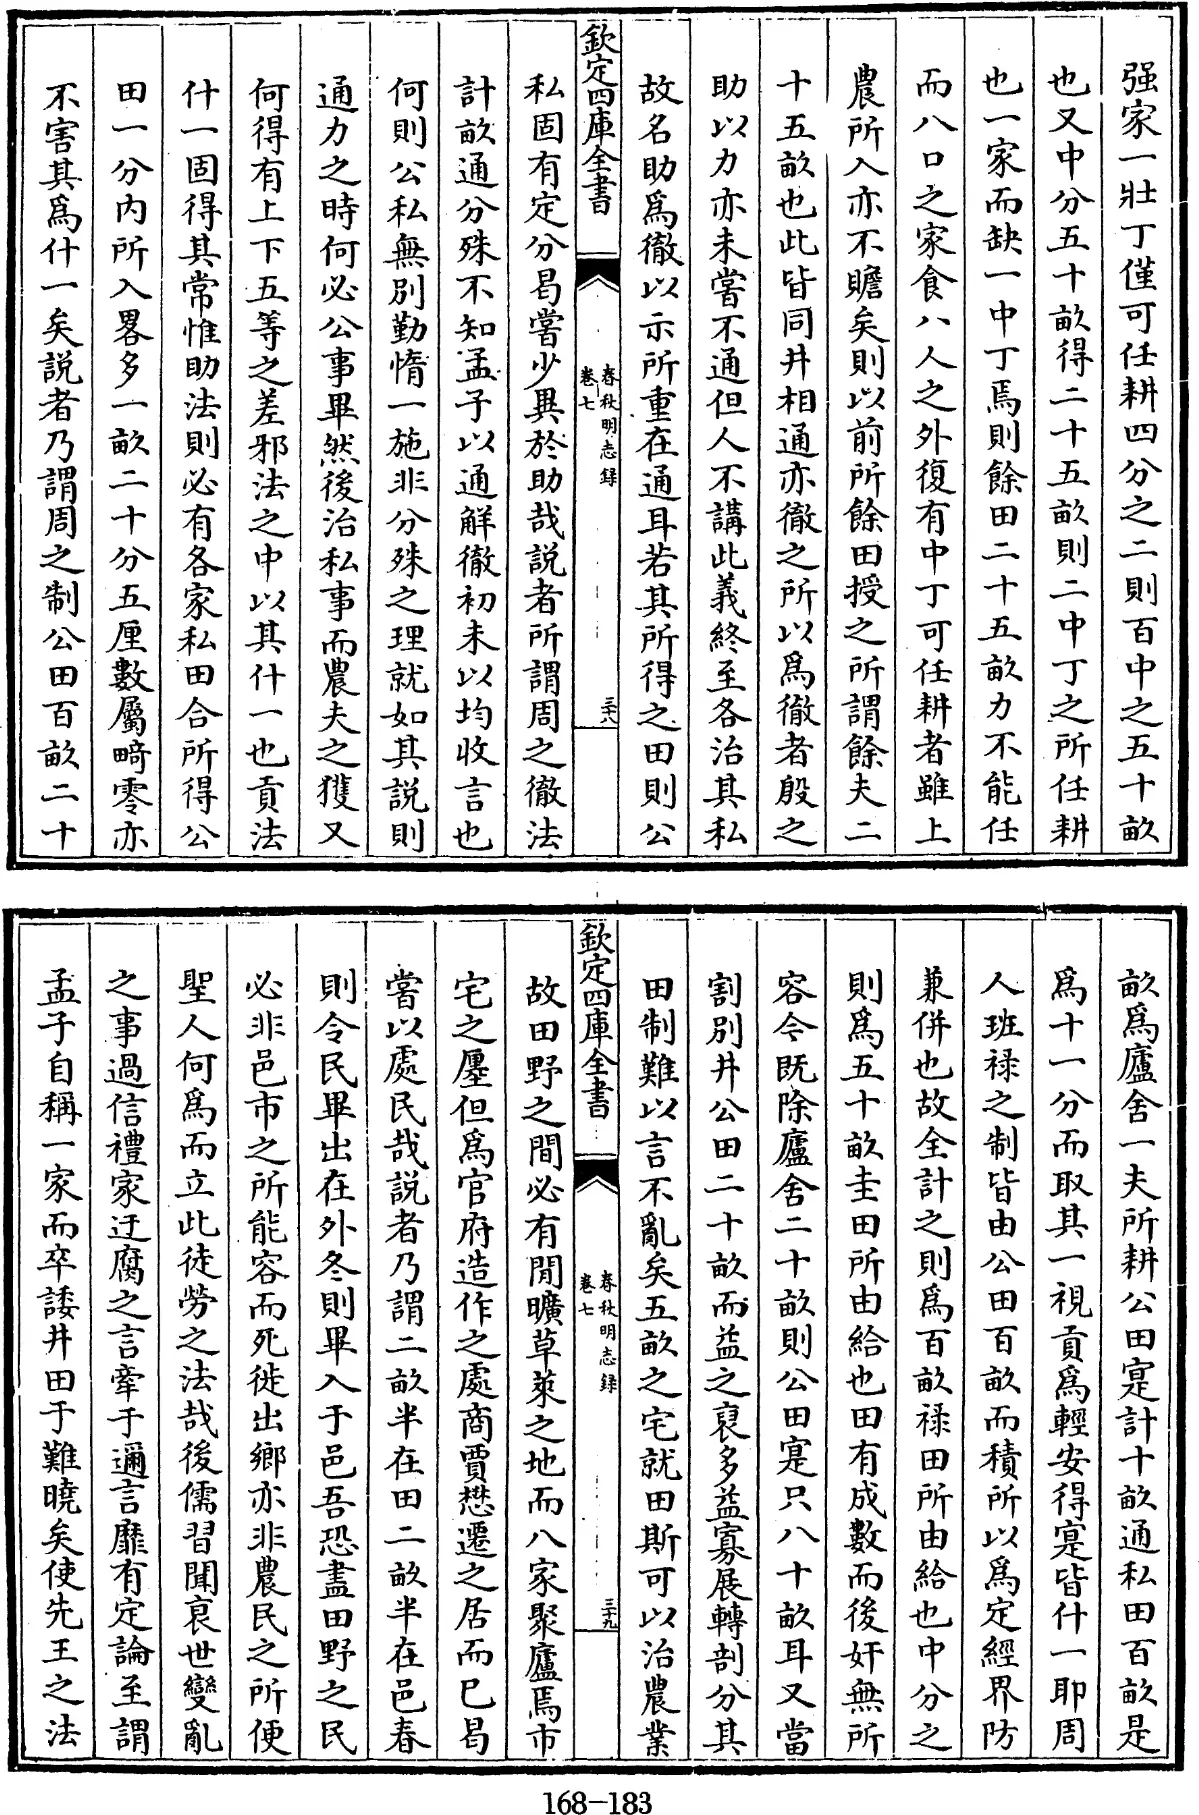 强家一壯丁僅可任耕四分之二則百中之五十畝
也又中分五十畝得二十五畝則二中丁之所任耕
也一家而缺一中丁焉則餘田二十五畝力不能任
而八口之家食八人之外復有中丁可任耕者雖上
農所入亦不贍矣則以前所餘田授之所謂餘夫二
十五畝也此皆同井相通亦徹之所以為徹者殷之
助以力亦未嘗不通但人不講此義終至各治其私
故名助為徹以示所重在通耳若其所得之田則公
欽定四庫全書
春秋明志錄
卷七
三十八
私固有定分曷嘗少異於助哉説者所謂周之徹法
計畝通分殊不知孟子以通解徹初未以均收言也
何則公私無別勤惰一施非分殊之理就如其説則
通力之時何必公事畢然後治私事而農夫之獲又
何得有上下五等之差邪法之中以其什一也貢法
什一固得其常惟助法則必有各家私田合所得公
田一分内所入畧多一畝二十分五厘數屬畸零亦
不害其為什一矣説者乃謂周之制公田百畝二十
畝為廬舍一夫所耕公田寔計十畝通私田百畝是
為十一分而取其一視貢為輕安得寔皆什一耶周
人班禄之制皆由公田百畝而積所以為定經界防
兼併也故全計之則為百畝禄田所由給也中分之
則為五十畝圭田所由給也田有成數而後奸無所
容今既除廬舍二十畝則公田寔只八十畝耳又當
割別井公田二十畝而益之裒多益寡展轉剖分其
田制難以言不亂矣五畝之宅就田斯可以治農業
欽定四庫全書
春秋明志錄
卷七
三十九
故田野之間必有閒曠草萊之地而八家聚廬焉市
宅之廛但為官府造作之處商賈懋遷之居而已曷
嘗以處民哉説者乃謂二畝半在田二畝半在邑春
則令民畢出在外冬則畢入于邑吾恐盡田野之民
必非邑市之所能容而死徙出鄉亦非農民之所便
聖人何為而立此徒勞之法哉後儒習聞衰世變亂
之事過信禮家迂腐之言牽于邇言靡有定論至謂
孟子自稱一家而卒諉井田于難曉矣使先王之法
168-183